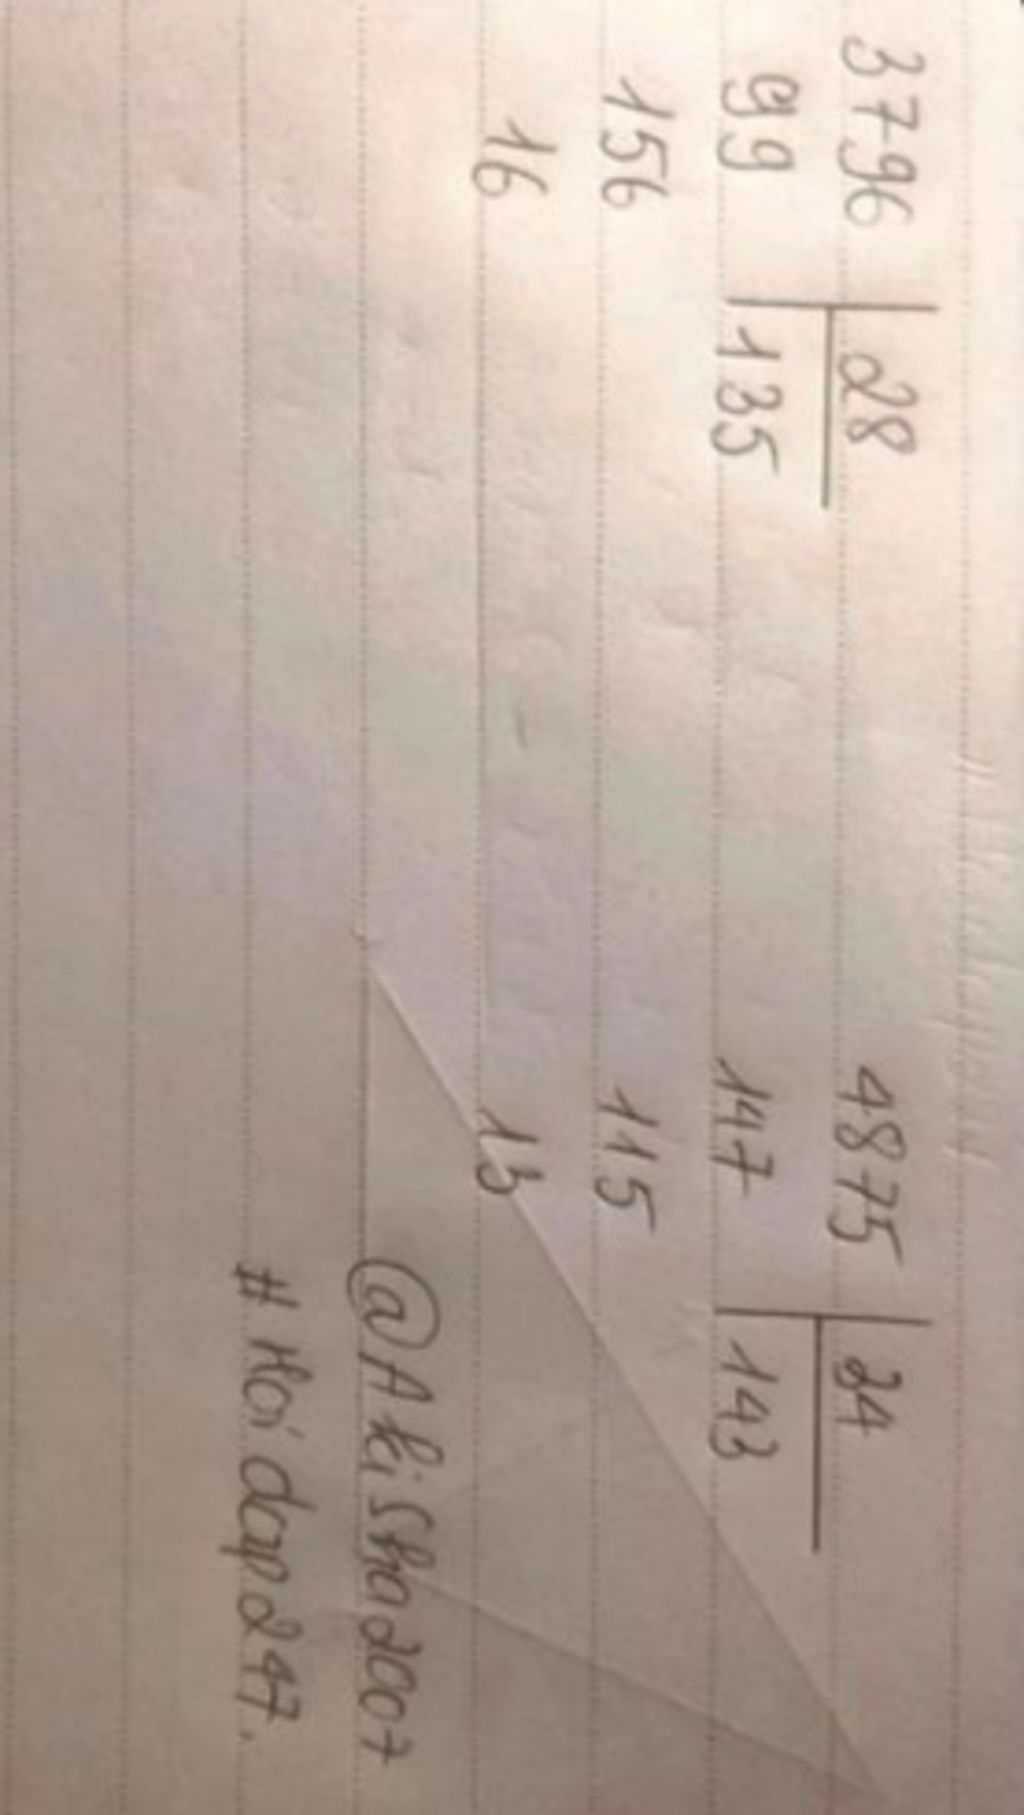 3796 | 28
99 | 135
156
16
4875 | 34
147 | 143
115
13
@Akisha2007
# Hoidap247.